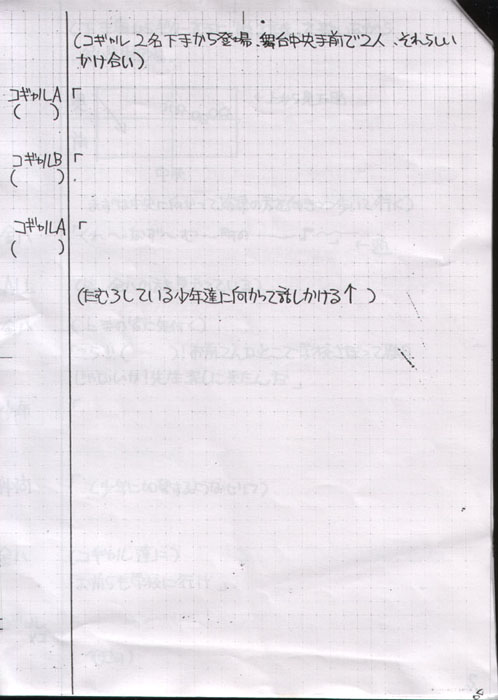 (コギャル2名下手から登場、舞台中央手前で2人、それらしい
かけ合い)
コギャルA「
(　　)
コギャルB「
(　　)
コギャルA「
(　　)
(たむろしている少年達に向かって話しかける↑ )